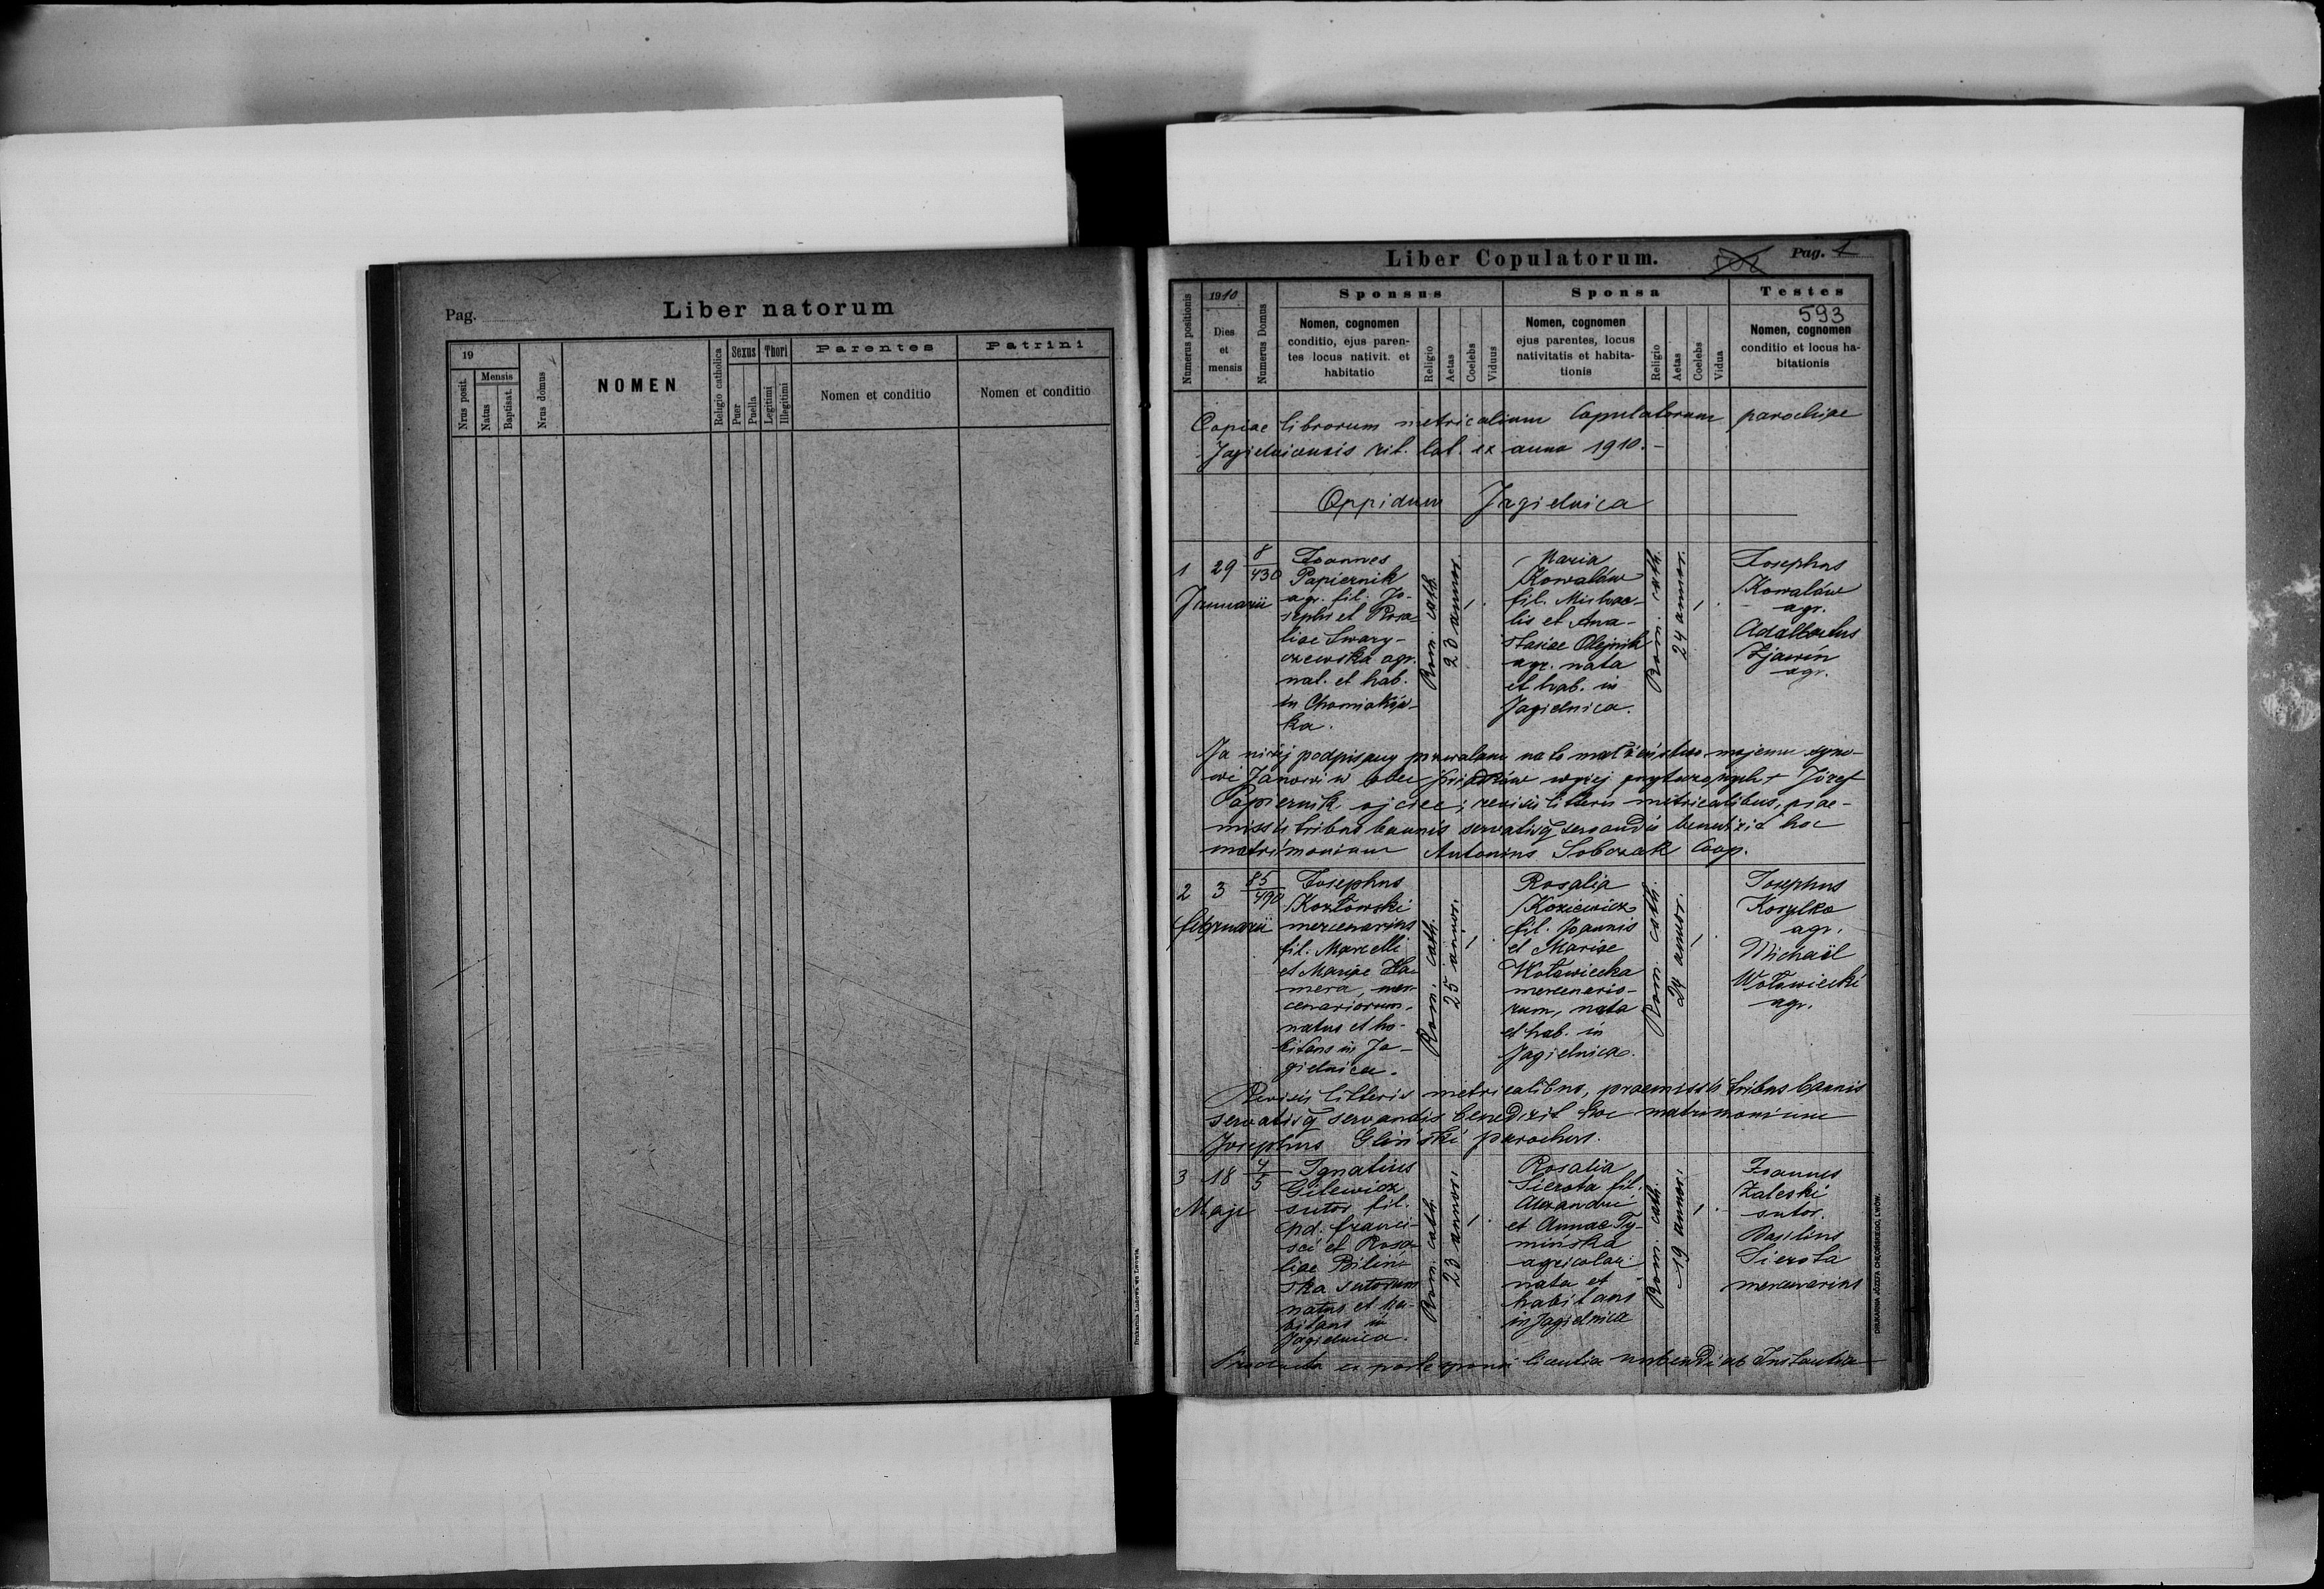 Pag.
Liber natorum
19
Nrus posit.
Mensis
Natus
Baptisat.
Nrus domus
NOMEN
Religio catholica
Sexus
Puer
Puella
Thori
Legitimi
Illegitimi
Parentes
Nomen et conditio
Patrini
Nomen et conditio
Drukarnia Ludowa we Lwowie.
Liber Copulatorum.
Pag. 1
Numerus positionis
1910
Dies
et
mensis
Numerus Domus
Sponsus
Nomen, cognomen
conditio, ejus paren-
tes locus nativit. et
habitatio
Religio
Aetas
Coelebs
Viduus
Sponsa
Nomen, cognomen
ejus parentes, locus
nativitatis et habita-
tionis
Religio
Aetas
Coelebs
Vidua
Testes
593
Nomen, cognomen
conditio et locus ha-
bitationis
Copiae librorum metricalium Copulatorum parochiae
Jagielnicensis rit. lat. ex anno 1910.-
Oppidum Jagielnica
1 29
Januarii
8
430
Joannes
Papiernik
agr. fil. Jo-
sephi et Rosa
liae Swary-
czewska agr.
nat. et hab.
in Chomiaków-
ka.
Rom. cath.
23 annor.
Maria
Kowalów
fil. Michae-
lis et Ana-
stasiae Olejnik
agr. nata
et hab. in
Jagielnica.
Rom. cath.
24 annor.
Josephus
Kowalów
agr.
Adalbertus
Zjawin
agr.
Ja niżej podpisany przwalam na to małżeństwo mojemu syno-
wi Janowi w obec świadków wyżej przytoczonych + Józef
Papiernik ojciec; revisis litteris metricalibus, prae-
missis tribus bannis servatisq servandis benedixit hoc
matrimonium Antonius Sobczak Coop.
2 3
februarii
85
490
Josephus
Kozłowski
mercenarius
fil. Marcelli
et Mariae Ha
mera, mer-
cenariorum,
natus et ha-
bitans in Ja-
gielnica.
Rom. cath.
25 annor.
Rosalia
Koziewicz
fil. Joannis
et Mariae
Wołowiecka
mercenario-
rum, nata
et hab. in
Jagielnica.
Rom. cath.
24 annor.
Josephus
Korylko
agr.
Michaël
Wołowiecki
agr.
Revisis litteris metricalibus, praemissis tribus bannis
servatisq servandis benedixit hoc matrimonium
Josephus Gliński parochus.
3 18
Maji
4
5
Ignatius
Gilewicz
sutor fil.
pd. franci-
sci et Rosa
liae Bilin
ska sutorum
natus et ha-
bitans in
Jagielnica.
Rom. cath.
23 annor.
Rosalia
Sierota fil.
Alexandri
et Annae Ty-
mińska
agricolar
nata et
habitans
in Jagielnica
Rom. cath.
19 annor.
Joannes
Zaleski
sutor.
Basilius
Sierota
mercenarius
Producta ex parte sponsi licentia nubendi ab Instantia
DRUKARNIA JÓZEFA CHĘCIŃSKIEGO, LWÓW.